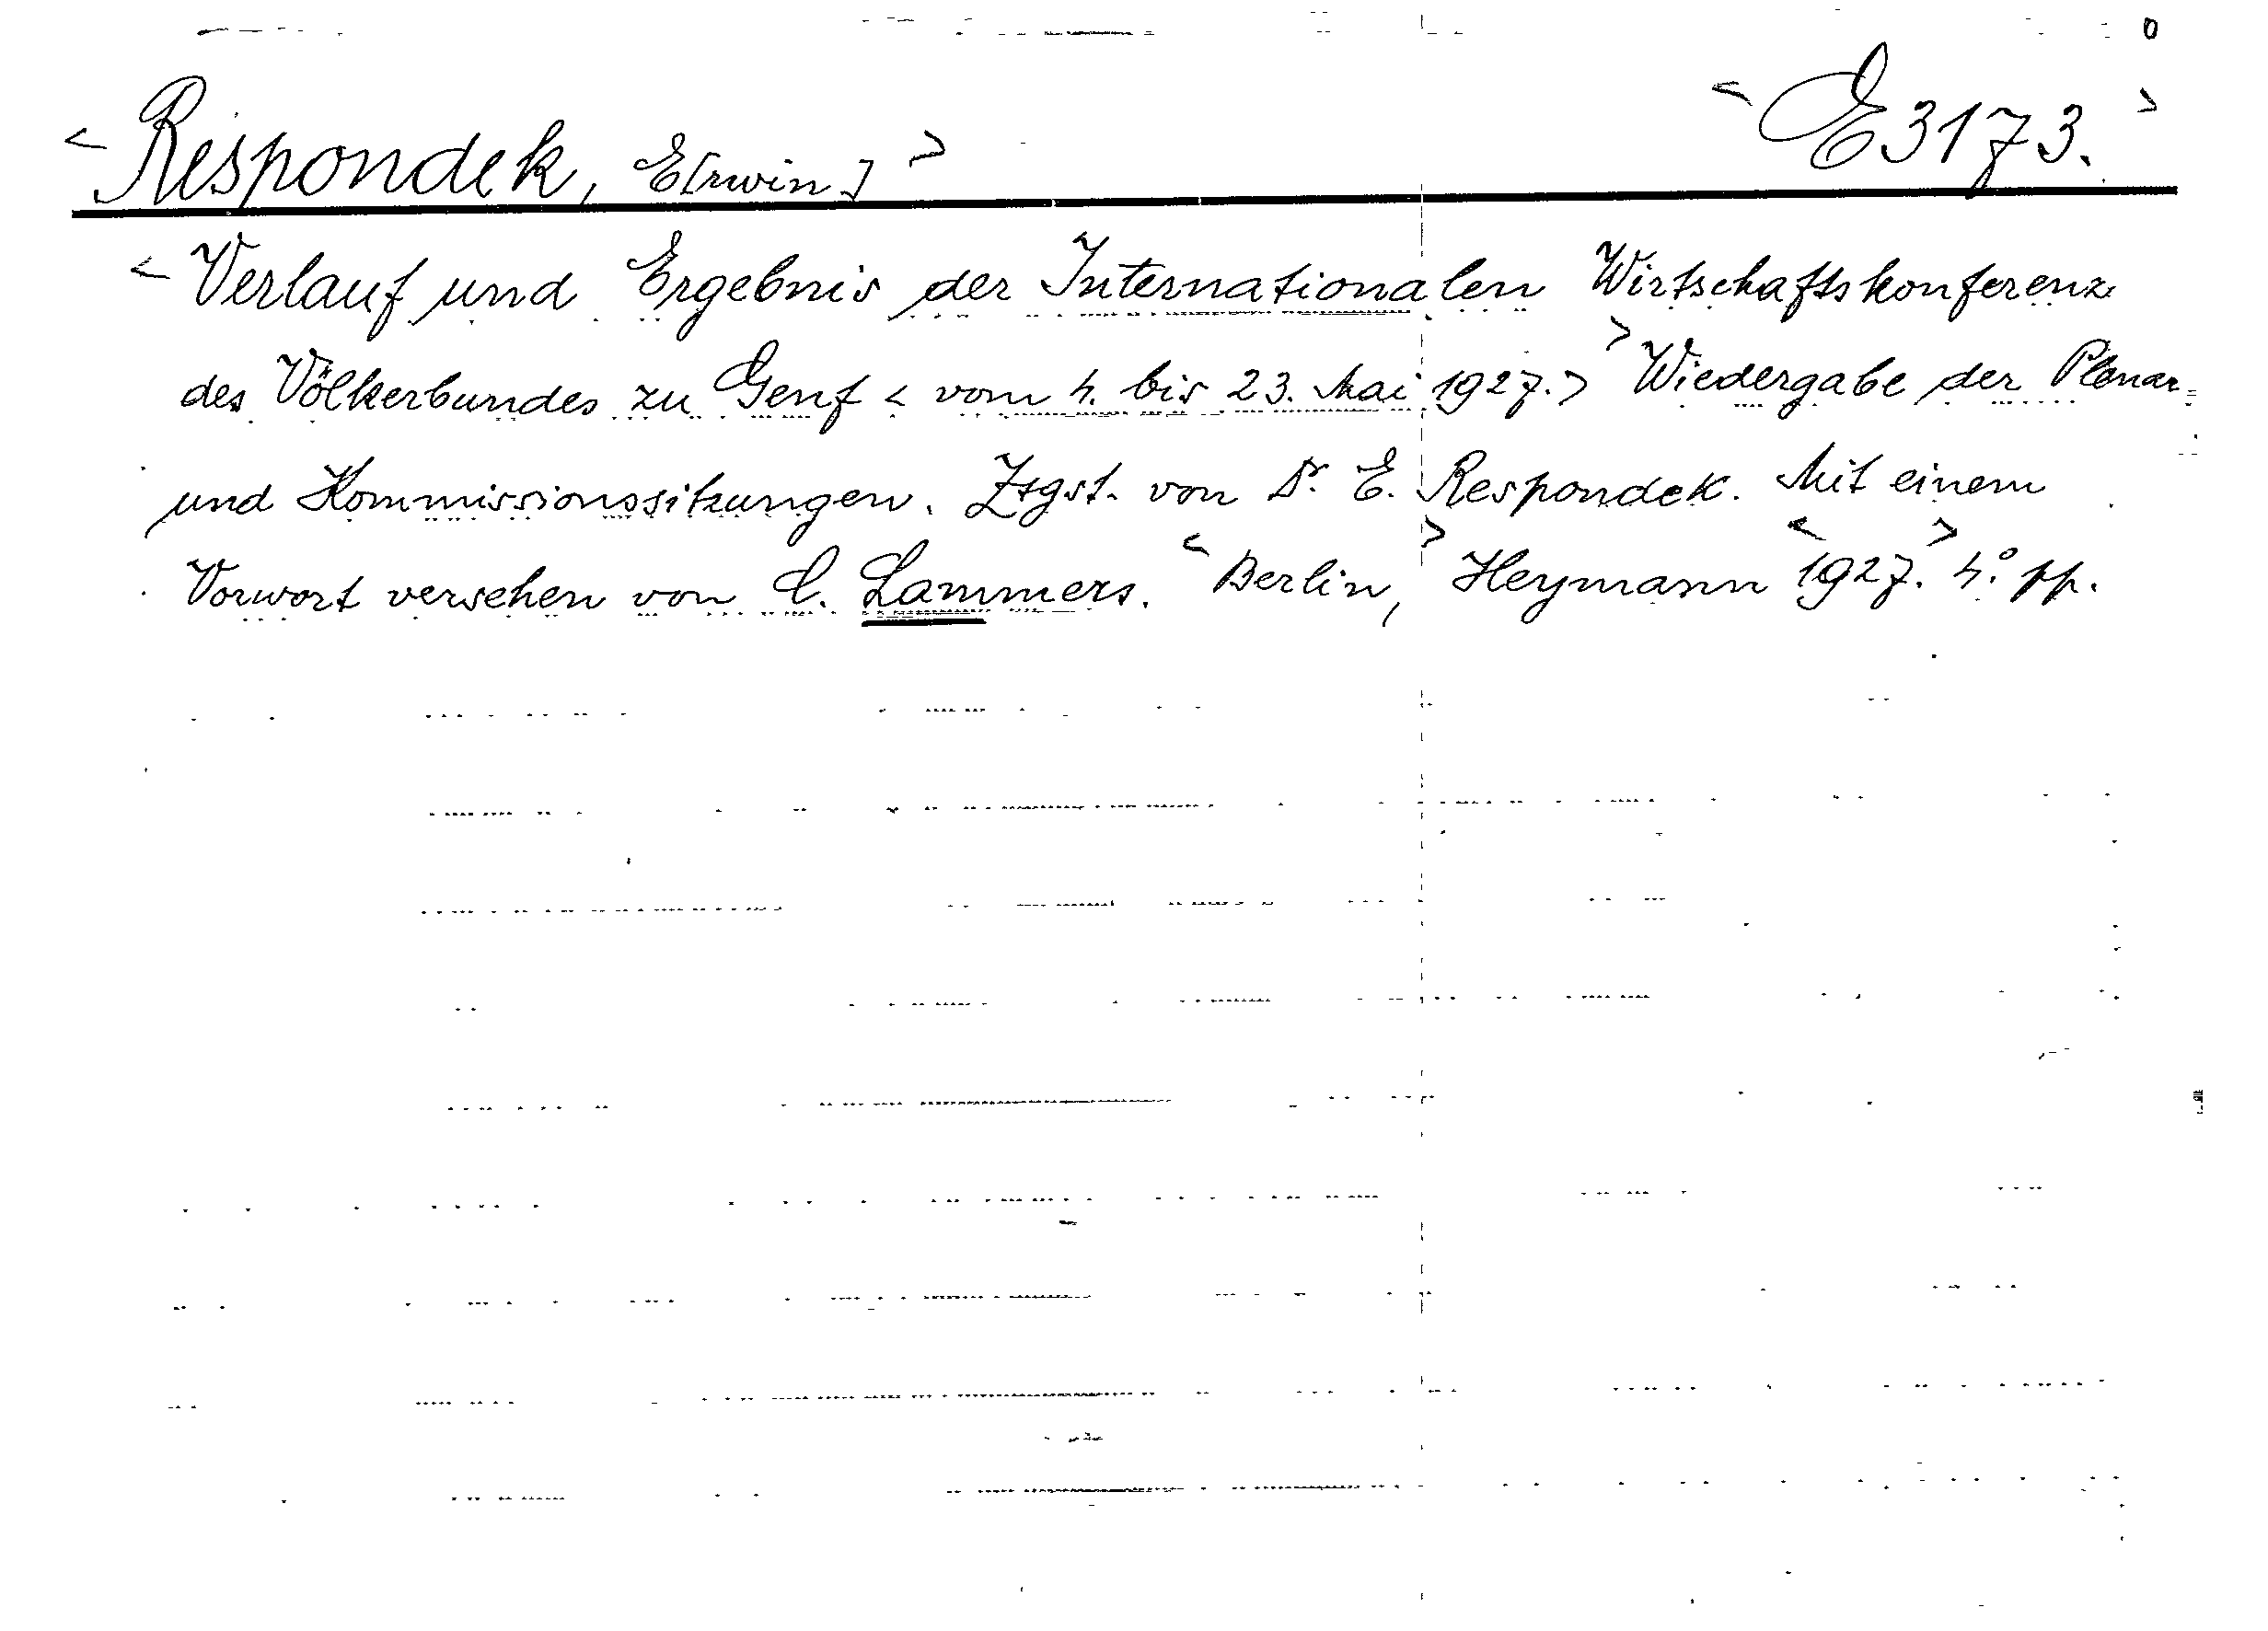 < Respondek, E[rwin] > < E3173. >
< Verlauf und Ergebnis der Internationalen Wirtschaftskonferenz
des Völkerbundes zu Genf < vom 4. bis 23. Mai 1927. > > Wiedergabe der Plenar=
und Kommissionssitzungen. Zsgst. von Dr. E. Respondek. Mit einem
Vorwort versehen von C. Lammers. < Berlin, > Heymann < 1927. > 4:° pp.